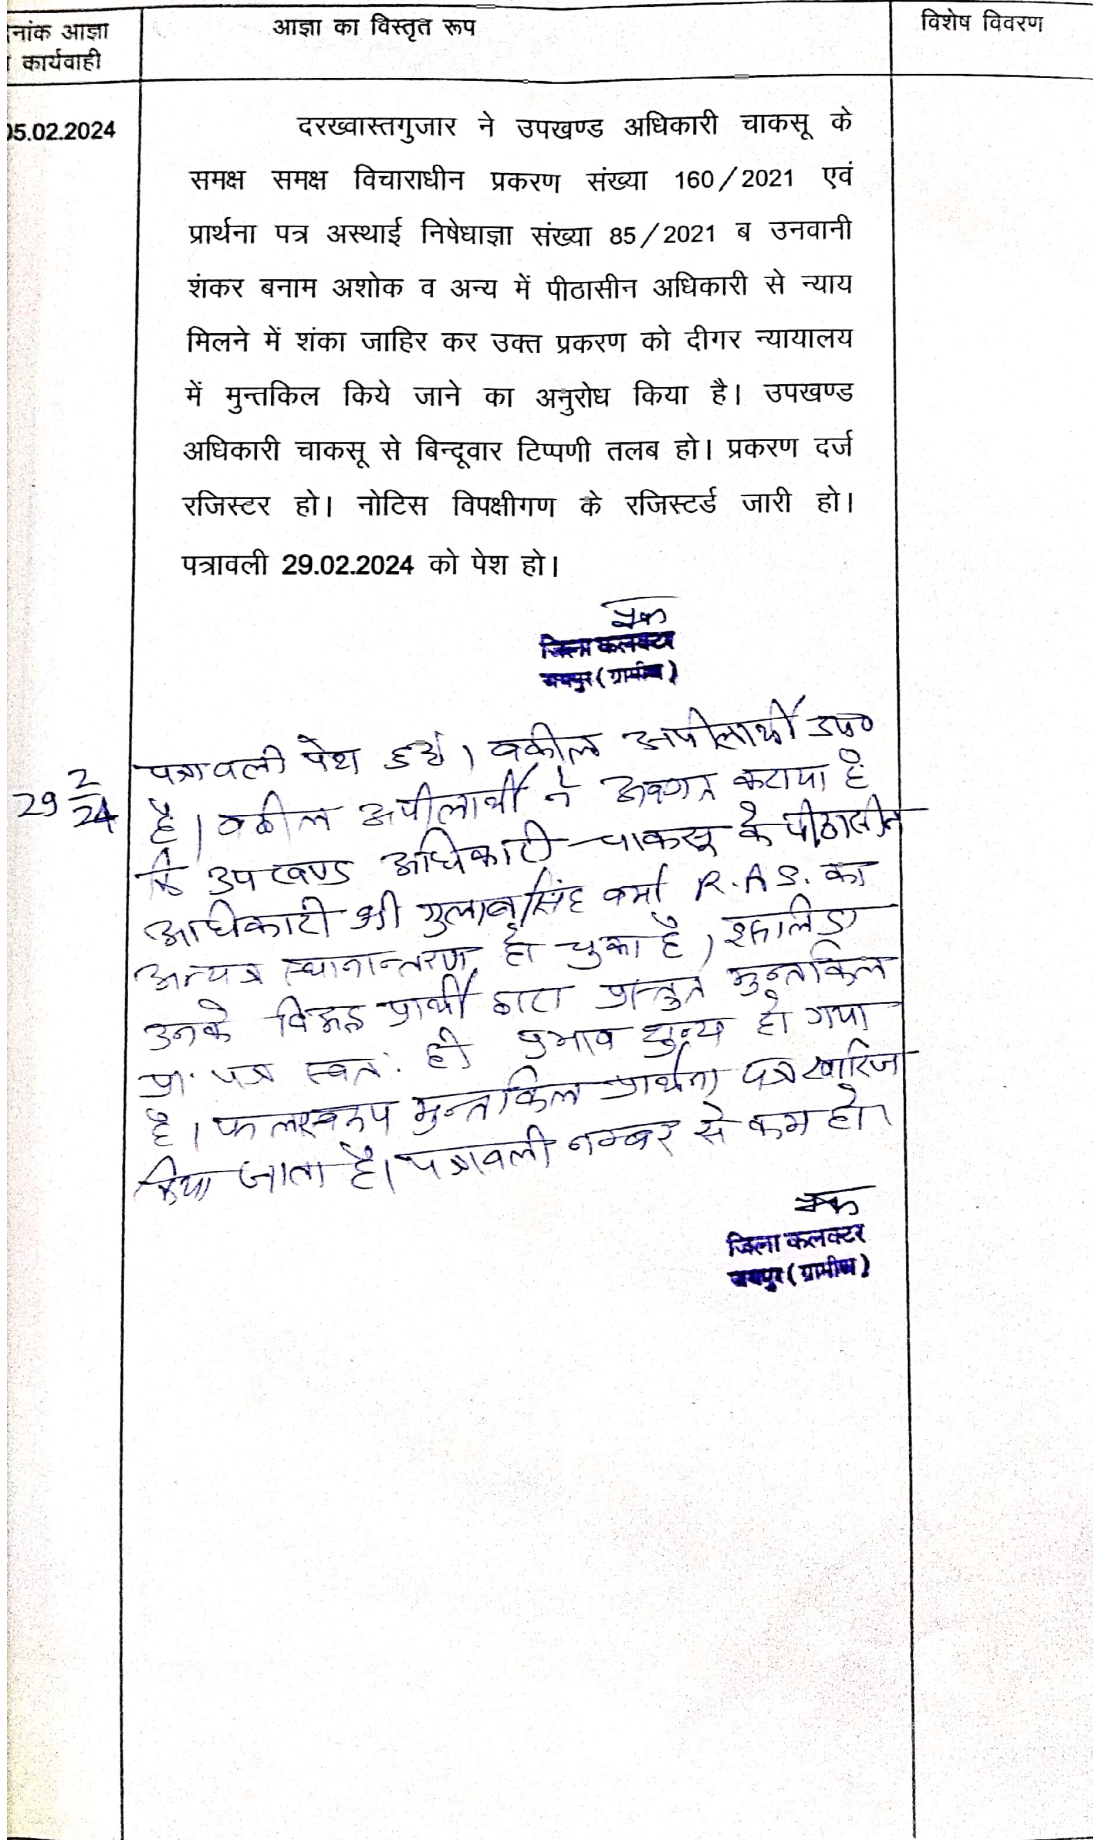 नांक आज्ञा
कार्यवाही
आज्ञा का विस्तृत रूप
विशेष विवरण
05.02.2024
दरख्वास्तगुजार ने उपखण्ड अधिकारी चाकसू के
समक्ष समक्ष विचाराधीन प्रकरण संख्या 160/2021 एवं
प्रार्थना पत्र अस्थाई निषेधाज्ञा संख्या 85/2021 ब उनवानी
शंकर बनाम अशोक व अन्य में पीठासीन अधिकारी से न्याय
मिलने में शंका जाहिर कर उक्त प्रकरण को दीगर न्यायालय
में मुन्तकिल किये जाने का अनुरोध किया है। उपखण्ड
अधिकारी चाकसू से बिन्दूवार टिप्पणी तलब हो। प्रकरण दर्ज
रजिस्टर हो। नोटिस विपक्षीगण के रजिस्टर्ड जारी हो।
पत्रावली 29.02.2024 को पेश हो।
जिला कलक्टर
जयपुर (ग्रामीण)
29 2/24
पत्रावली पेश हुई। वकील अपीलार्थी उप०
है। वकील अपीलार्थी ने अवगत कराया है
कि उपखण्ड अधिकारी चाकसू के पीठासीन
अधिकारी श्री गुलाब सिंह वर्मा R.A.S. का
अन्यत्र स्थानान्तरण हो चुका है, इसलिए
उनके विरूद्ध प्रार्थी द्वारा प्रस्तुत मुन्तकिल
प्रा. पत्र स्वत: ही प्रभाव शून्य हो गया
है। फलस्वरूप मुन्तकिल प्रार्थना पत्र खारिज
किया जाता है। पत्रावली नम्बर से कम हो।
जिला कलक्टर
जयपुर (ग्रामीण)